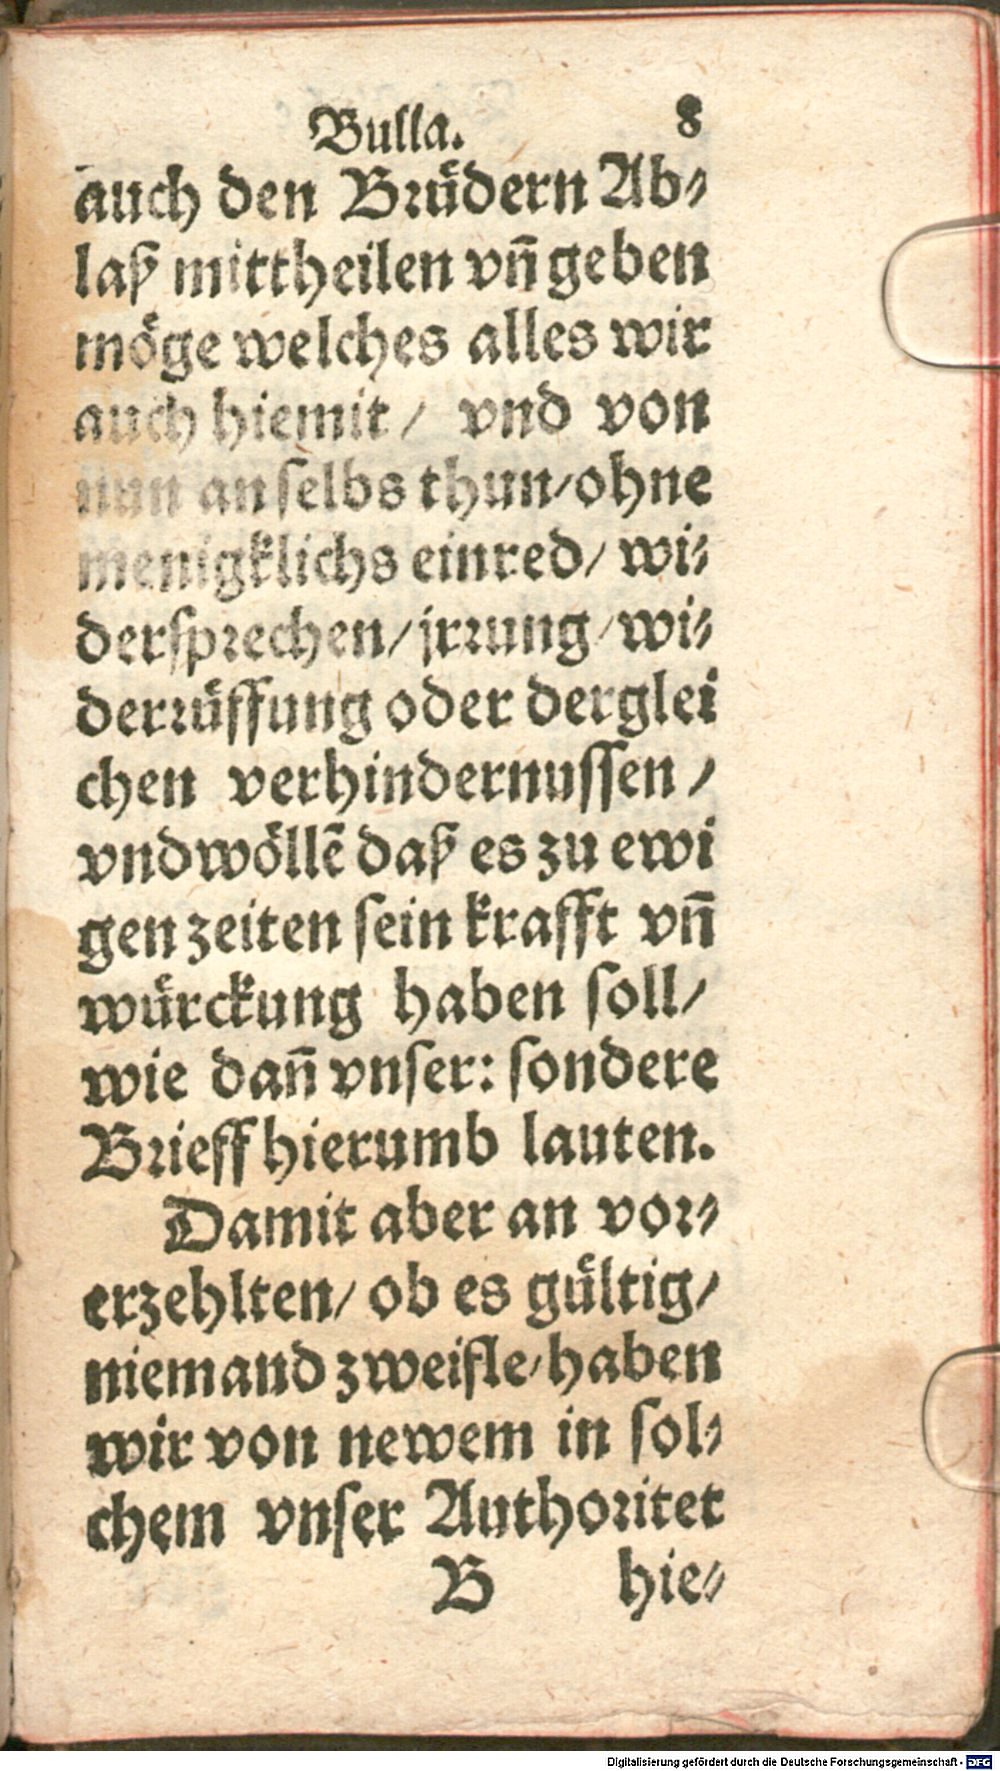 Bulla. 8
auch den Bruͤdern Ab⸗
laß mittheilen vñ geben
moͤge welches alles wir
auch hiemit / vnd von
nun an selbs thun/ohne
menigklichs einred/ wi⸗
dersprechen/jrrung/wi⸗
derruͤffung oder derglei
chen verhindernussen /
vnd woͤllẽ daß es zu ewi
gen zeiten sein krafft vñ
wuͤrckung haben soll/
wie dañ vnser: sondere
Brieff hierumb lauten.
Damit aber an vor⸗
erzehlten/ ob es guͤltig/
niemand zweifle/haben
wir von newem in sol⸗
chem vnser Authoritet
B hie⸗
Digitalisierung gefördert durch die Deutsche Forschungsgemeinschaft - DFG